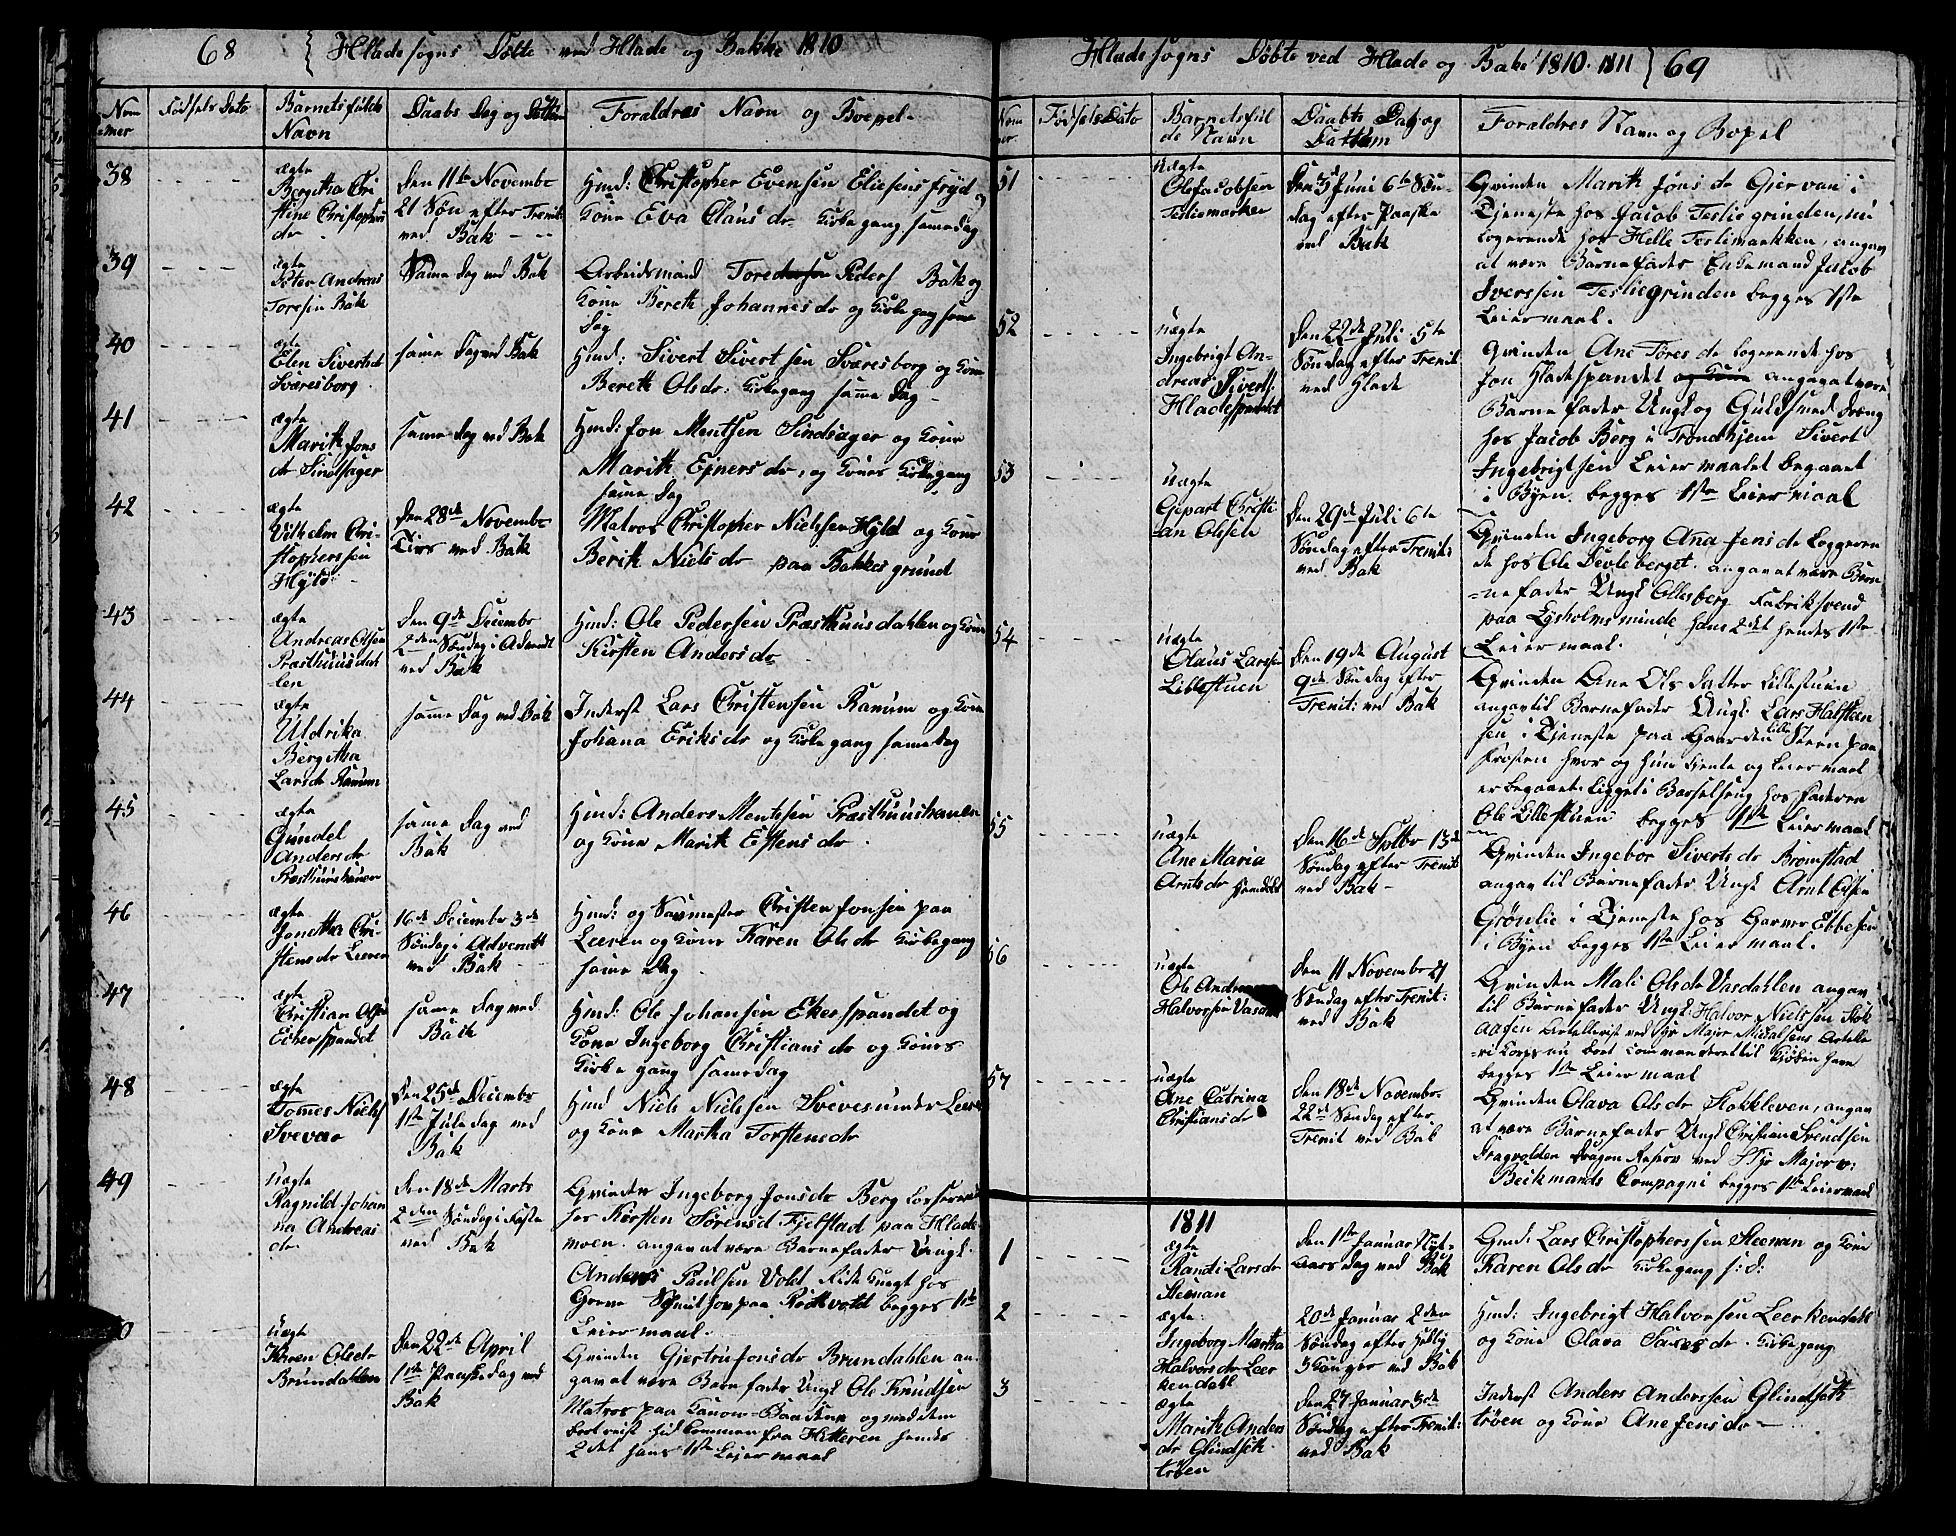 68 { Hlade sogns Döbte ved Hlade og Bakke 1810
Num
mer
Födsels Dato
Barnets fulde
Navn
Daabs Dag og
Foraldres Navn og Boepel
38
ægte
Bergitha Chri
stine Christophers
dr
Den 11te Novembr
21 Søn efter Trenit:
ved Bak
Hmd: Christopher Evensen Eliesens fryd
og Kone Eva Claus dr. Kirkegang same dag
39
ægte
Peter Andreas
Toresen Bak
Same Dag ved Bak
Arbeidsmand Peders Bak og
Kone Bereth Johannes dr og Kirkegang same
Dag
40
ægte
Elen Siverts dr
Sværesborg
same Dag ved Bak
Hmd: Sivert Sivertsen Sværesborg og Kone
Bereth Ols dr: Kirkegang same Dag
41
ægte
Marith Jons
dr Sindsager
same Dag ved Bak
Hmd: Jon Mentsen Sindsager og Kone
Marith Ejners dr, og Kones Kirkegang
same Dag
42
ægte
Vilhelm Chri-
stophersen
Hyld
Den 28de Novembr
Tirs ved Bak
Matros Christopher Nielsen Hyld og Kone
Berith Niels dr paa Bakkes grund
43
ægte
Andreas Olsen
Præsthuus dah
len
Den 9de Decembr
2den Søndag i Advendt
ved Bak
Hmd: Ole Pedersen Præsthuusdahlen og Kone
Kirsten Anders dr
44
ægte
Uldrika
Bergitha
Lars dr Ranum
same Dag ved Bak
Inderst Lars Christensen Ranum og Kone
Johana Eriks dr og Kirkegang same dag
45
ægte
Gundel
Anders dr
Præsthuushauen
same Dag ved
Bak
Hmd: Anders Mentsen Præsthuushauen
og Kone Marith Estens dr.
46
ægte
Jonetha Chri-
stens dr Leeren
16de Decembr 3de
Søndag i Advendt
ved Bak
Hmd: og Christen Jonsen paa
Leeren og Kone Karen Ols dr Kirkegang
same Dag
47
ægte
Christian Olsen
Ekerspandet
same Dag ved
Bak
Hmd: Ole Johansen Ekerspandet og
Kone Ingeborg Christians dr og Kones
Kirkegang same dag
48
ægte
Tomes Niels
Sveven
Den 25de Decembr
1ste Juledag ved
Bak
Hmd Niels Nielsen under Leeren
og Kone Martha Torstens dr
49
uægte
Ragnild Johan
na Andreas
dr
Den 18de Marts
2den Søndag i Faste
ved Bak
Qvinden Ingeborg Jons dr Berg
hos Kirsten Sørens d Fjelstad paa Hlade-
moen. angav at være Barnefader Ungk.
Anders Paulsen Vold Ride Knegt hos
Greve Schmittow paa Rotvold begges 1ste
Leiermaal.
50
uægte
Karen Ols dr
Brundahlen
Den 22de April
1ste Paaskedag ved
Bak
Qvinden Gjertru Jons dr Brundahlen an-
gav at være Barnefader Ungk Ole Knudsen
Matros paa og med dem
hid kommen fra Hitteren hendes
2det hans 1ste Leiermaal
Hlade sogns Döbte ved Hlade og Bake 1810. 1811 } 69
Födsels Dato
Barnets ful
de Navn
Daabs Dag og
Dattum
Foraldres Navn og Bopel
51
uægte
Ole Jacobsen
Teslimarken
Den 3de Juni 6te Søn-
dag efter Paaske
ved Bak
Qvinden Marith Jons dr Gjervan i
Tjeneste hos Jacob Tesliegrinden, nu
logerende hos Helle Teslimarkken, angav
at være Barnefader Enkemand Jacob
Iversen Tesliegrinden begges 1ste
Leiermaal.
52
uægte
Ingebrigt An-
dreas Siverts
Hladespandet
Den 22de Juli 5te
Søndag efter Trenit:
ved Hlade
Qvinden Ane Tores dr logerende hos
Jon Hladespandet og Kone angav at være
Barnefader Ungk og Guldsmed dreng
hos Jacob Berg i Trondhjem Sivert
Ingebrigtsen Leiermaalet begaaet
i Byen. begges 1ste Leiermaal
53
uægte
Gepart Christi-
an Olsen
Den 29de Juli 6te
Søndag efter Trenit:
ved Bak
Qvinden Ingeborg Ana Jens dr Loggeren
de hos Ole Devleberget. angav at være Bar-
nefader Ungk Ollesberg Fabriksvend
paa Lysholms minde, hans 2det hendes 1ste
Leiermaal.
54
uægte
Olaus Larsen
Lillestuen
Den 19de August
9de Søndag efter
Trenit: ved Bak
Qvinden Ane Ols datter Lillestuen
angav til Barnefader Ungk: Lars Halsteen
sen i Tjeneste paa Gaarden Lille Steen paa
Frosten hvor og hun tjente og Leiermaal
er begaaet. ligget i Barselseng hos faderen
Ole Lillestuen begges 1ste Leiermaal
55
uægte
Ane Maria
Arnts dr
Den 16de Septbr 13de
Søndag efter Trenit:
ved Bak
Qvinden Ingebor Siverts dr Bromstad
angav til Barnefader Ungk Arnt Olsen
Grønlie i Tjeneste hos Garver Ebbesen
i Byen begges 1ste Leiermaal.
56
uægte
Ole Andreas
Halvorsen
Den 11 Novembr 21
Søndag efter Trenit:
ved Bak
Qvinden Mali Ols dr Vasdahlen angav
til Barnefader Ungk. Halvor Nielsen Stok
aasen Artellerist ved Hr Major Michalsens Artelle
ri Korps nu bort Commanderet til Kjöben havn
begges 1ste Leiermaal
57
uægte
Ane Catrina
Christians dr
Den 18de Novembr
22de Søndag efter
Trenit ved Bak
Qvinden Olava Ols dr Stokkleven, angav
at være Barnefader Ungk Christian Svendsen
Dragvolden Dragon ved Hr Major v:
Beikmands Compagni begges 1ste Leiermaal
1811
1
ægte
Randi Lars dr
Steenan
Den 1ste Januar Nyt-
aars dag ved Bak
Hmd: Lars Christophersen Steenan og Kone
Karen Ols dr Kirkegang s: d:
2
ægte
Ingeborg Martha
Halvors dr Leer
kendahl
20de Januar 2den
Søndag efter Hellig
3 Konger ved Bak
Hmd: Ingebrigt Halvorsen Leerkendahl
og Kone Olava dr. Kirkegang
3
ægte
Marith Anders
dr Glindseth
trøen
Den 27 Januar 3de
Søndag efter
ved Bak
Inderst Anders Andersen Glindseth
trøen og Kone Ane Jens dr